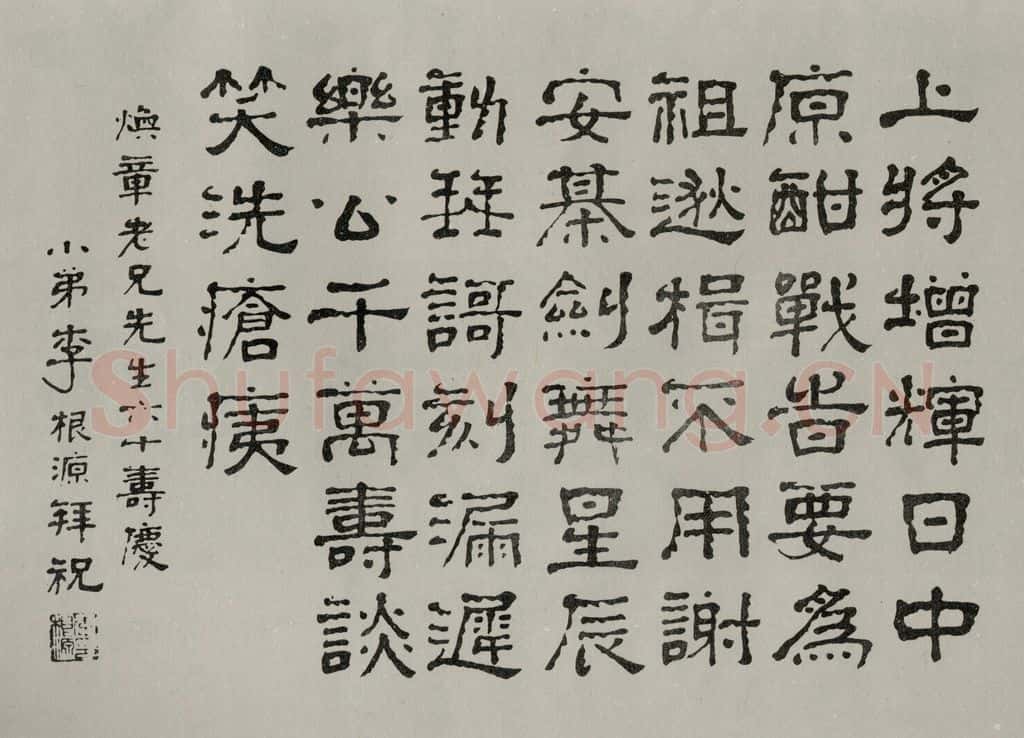 上將增輝日中
原酣戰旹要為
祖逖楫不用謝
安棊劍舞星辰
動珡謌刻漏遲
樂公千萬壽談
笑洗瘡痍
煥章老兄先生六十壽慶
小弟李根源拜祝
Shufawang.CN